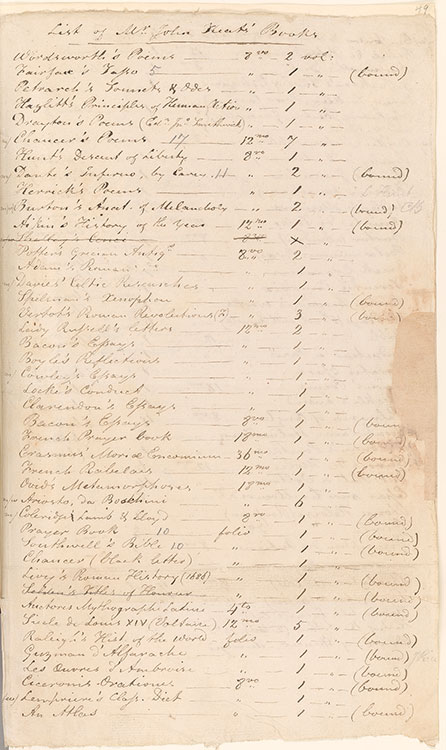 49
List of Mr. John Keats's Books
Wordsworth's Poems — 8vo — 2 vol:
Fairfax's Tasso 5 — " — 1 — " — (bound)
Petrarch's Sonnets & Odes " — 1 — " —
Hazlitt's Principles of Human Action " — 1 — " —
Drayton's Poems " — 1 — " —
Chaucer's Poems 17 12mo 7 — " —
Hunt's Descent of Liberty — 8vo — 1 — " —
Dante's Inferno, by Carey " — 2 — " — (bound)
Herrick's Poems — " — 1 — " —
Burton's Anat. of Melancholy " — 2 — (bound)
Aikin's History of the Year — 12mo 1 — " — (bound)
8vo X — " —
Potter's Grecian Antiqs. — 8vo 2 — " —
Adam's Roman — " — 1 — " —
Davies' Celtic Researches — " — 1 — " —
Spelman's Xenophon — " — 1 — " — (bound)
Vertot's Roman Revolutions " — 3 — " — (bound)
Lady Russell's Letters 12mo 2 — " —
Bacon's Essays — " — 1 — " —
Boyle's Reflections — " — 1 — " —
Cowley's Essays — " — 1 — " —
Locke's Conduct — " — 1 — " —
Clarendon's Essays — " — 1 — " —
Bacon's Essays — 8vo — 1 — " — (boun
French Prayer book — 18mo 1 — " — (bound)
Erasmus' Moriæ Encomium — 36mo 1 — " — (bound)
French Rabelais — 12mo 1 — " — (bound)
Ovid's Metamorphoses — 18mo 1 — " —
Ariosto, da — " — 6 — " —
Coleridge Lamb & Lloyd — 8vo — 1 — " — (bound)
Prayer Book — 10 folio 1 — " — (bound)
Southwell's Bible 10 " — 1 — " — (bound)
Chaucer (black letter) — " — 1 — " —
Levy's Roman History (1686) " — 1 — " — (bound)
Selden's Titles of Honour — " — 1 — " — (bound)
Auctores Mythographi Latini 4to — 1 — " — (bound)
Siecle de Louis XIV (Voltaire) 12mo 5 — " —
Raleigh's Hist. of the World folio — 1 — " — (bound)
Guzman d'Alfarache — " — 1 — " — (bound)
Les Œuvres d'Amboise — " — 1 — " — (bound)
Ciceronis Orationes — 8vo — 1 — " — (bound)
Lempriere's Class. Dict — " — 1 — " —
An Atlas — " — 1 — " — (bound)